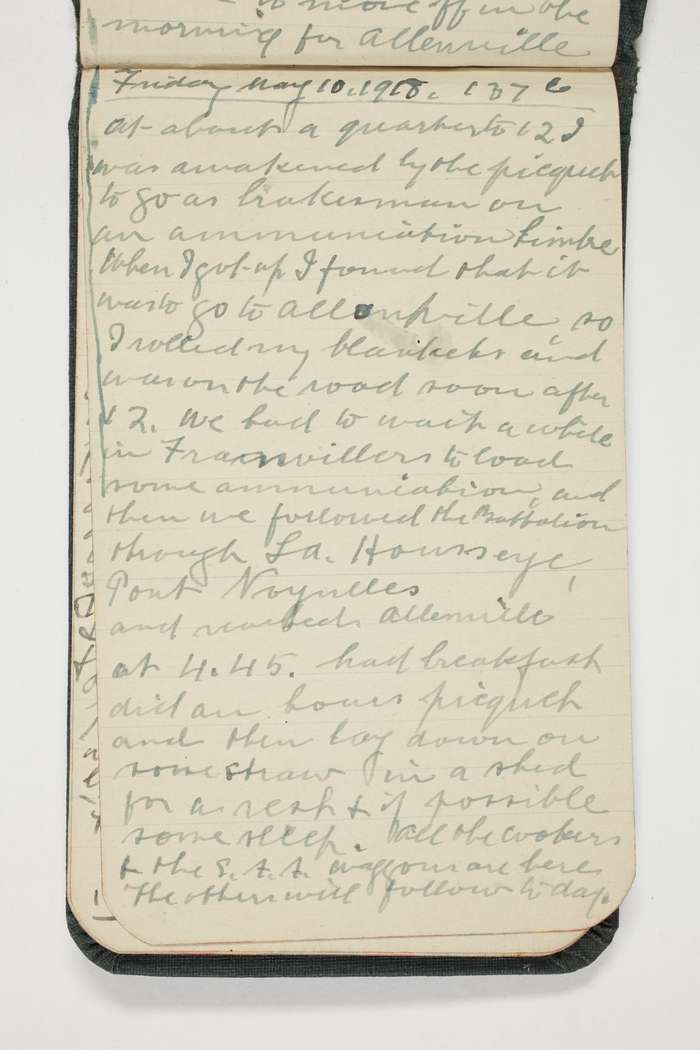 to move off in the
morning for Allenville
Friday May 10. 1918. 137
at about a quarter to 12 I
was awakened by the picquet
to go as brakesman on
an ammunition limbe
When I got up I found that it
was to go to Allonville so
I rolled my blankets and
was on the road soon after
12. We had to wait a while
in Franvillers to load
some ammunition, and
then we followed the Battalion
through La. Housseye,
Pont Noyelles
and reached Allenville
at 4.45. had breakfast
did an hours picquet
and then lay down on
some straw in a shed
for a rest & if possible
some sleep. All the cookers
& the S.A.A. waggons are here
The others will follow to day.